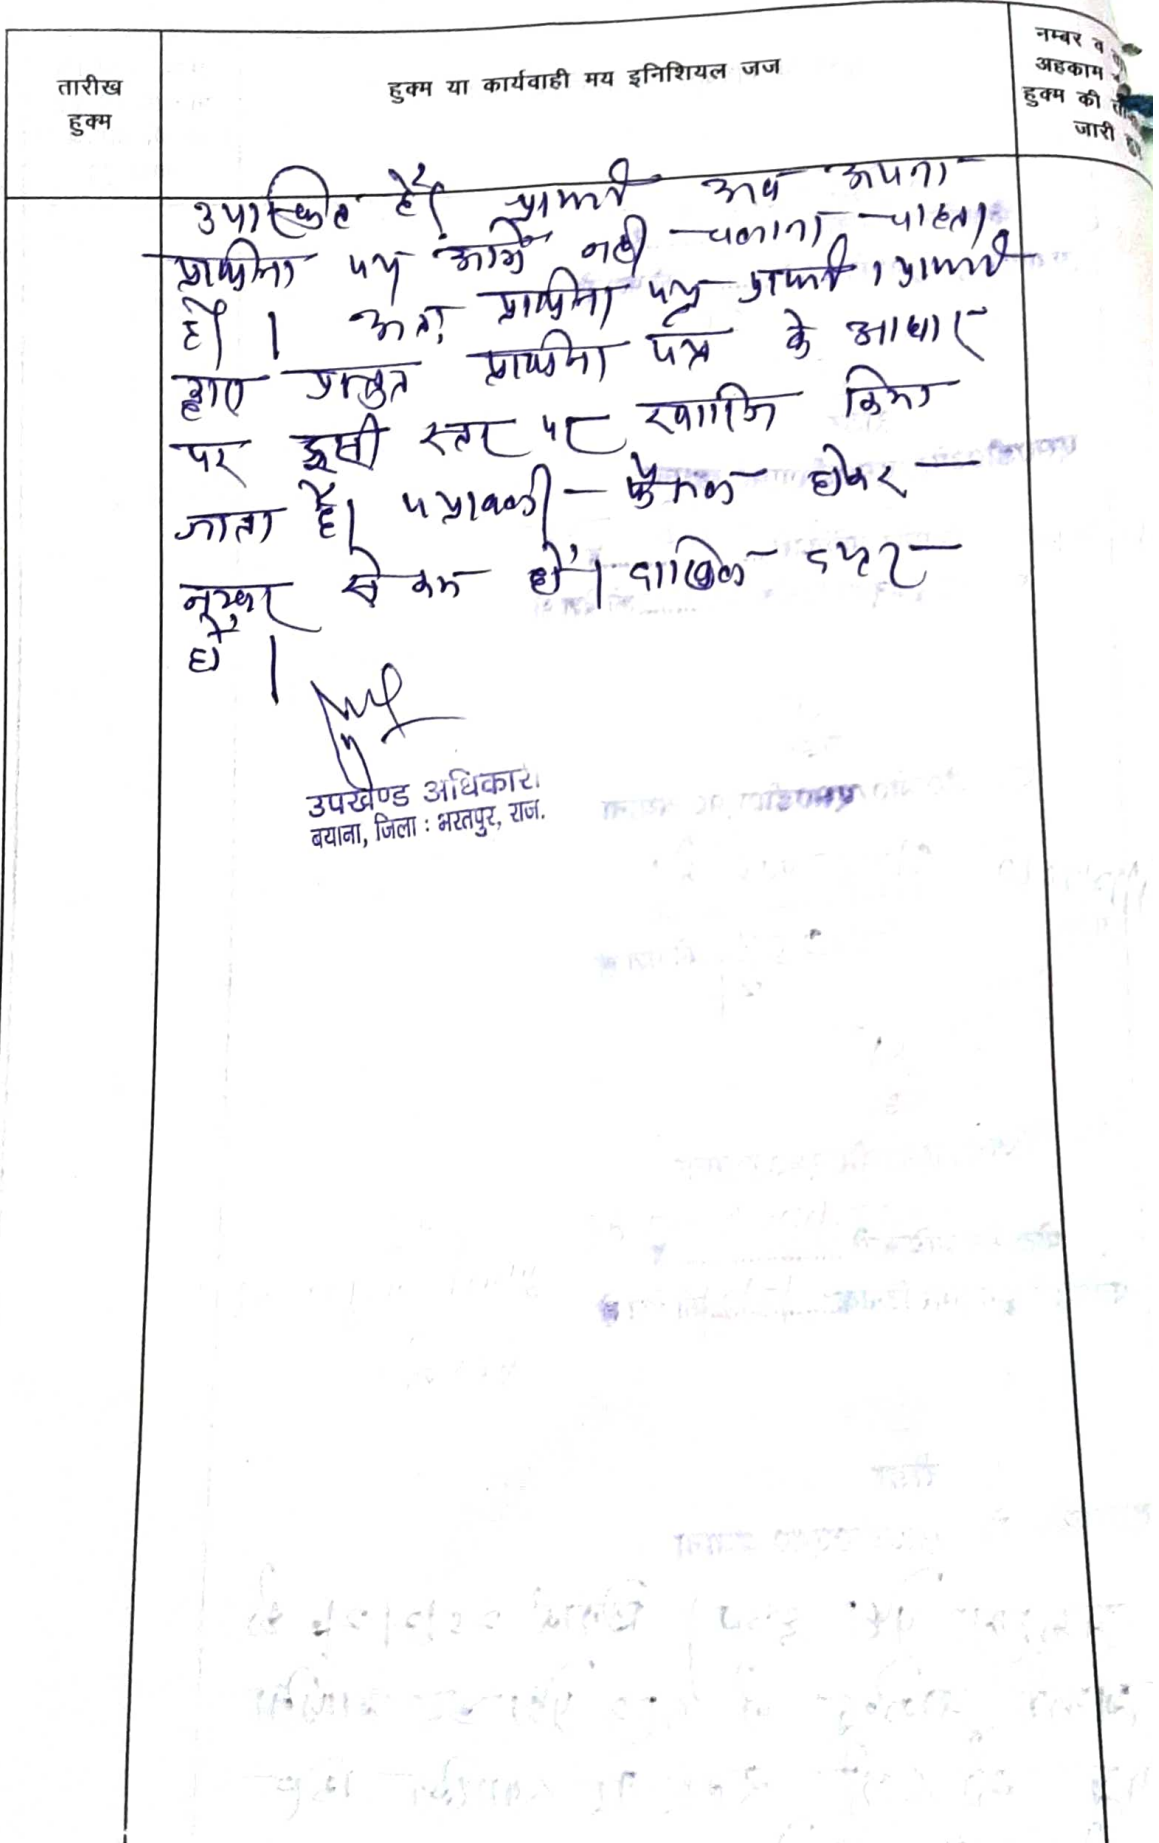 तारीख
हुक्म
हुक्म या कार्यवाही मय इनिशियल जज
नम्बर व
अहकाम
हुक्म की
जारी
उपास्थित है। प्रार्थी अब अपना
प्रार्थना पत्र आगे नही चलाना चाहता
है। अतः प्रार्थना पत्र प्रार्थी । प्रार्थी
द्वारा प्रस्तुत प्रार्थना पत्र के आधार
पर इसी स्तर पर खारिज किया
जाता है। पत्रावली फैसल होकर
नम्बर से कम हो। दाखिल दफ्तर
हो।
उपखण्ड अधिकारी
बयाना, जिला : भरतपुर, राज.